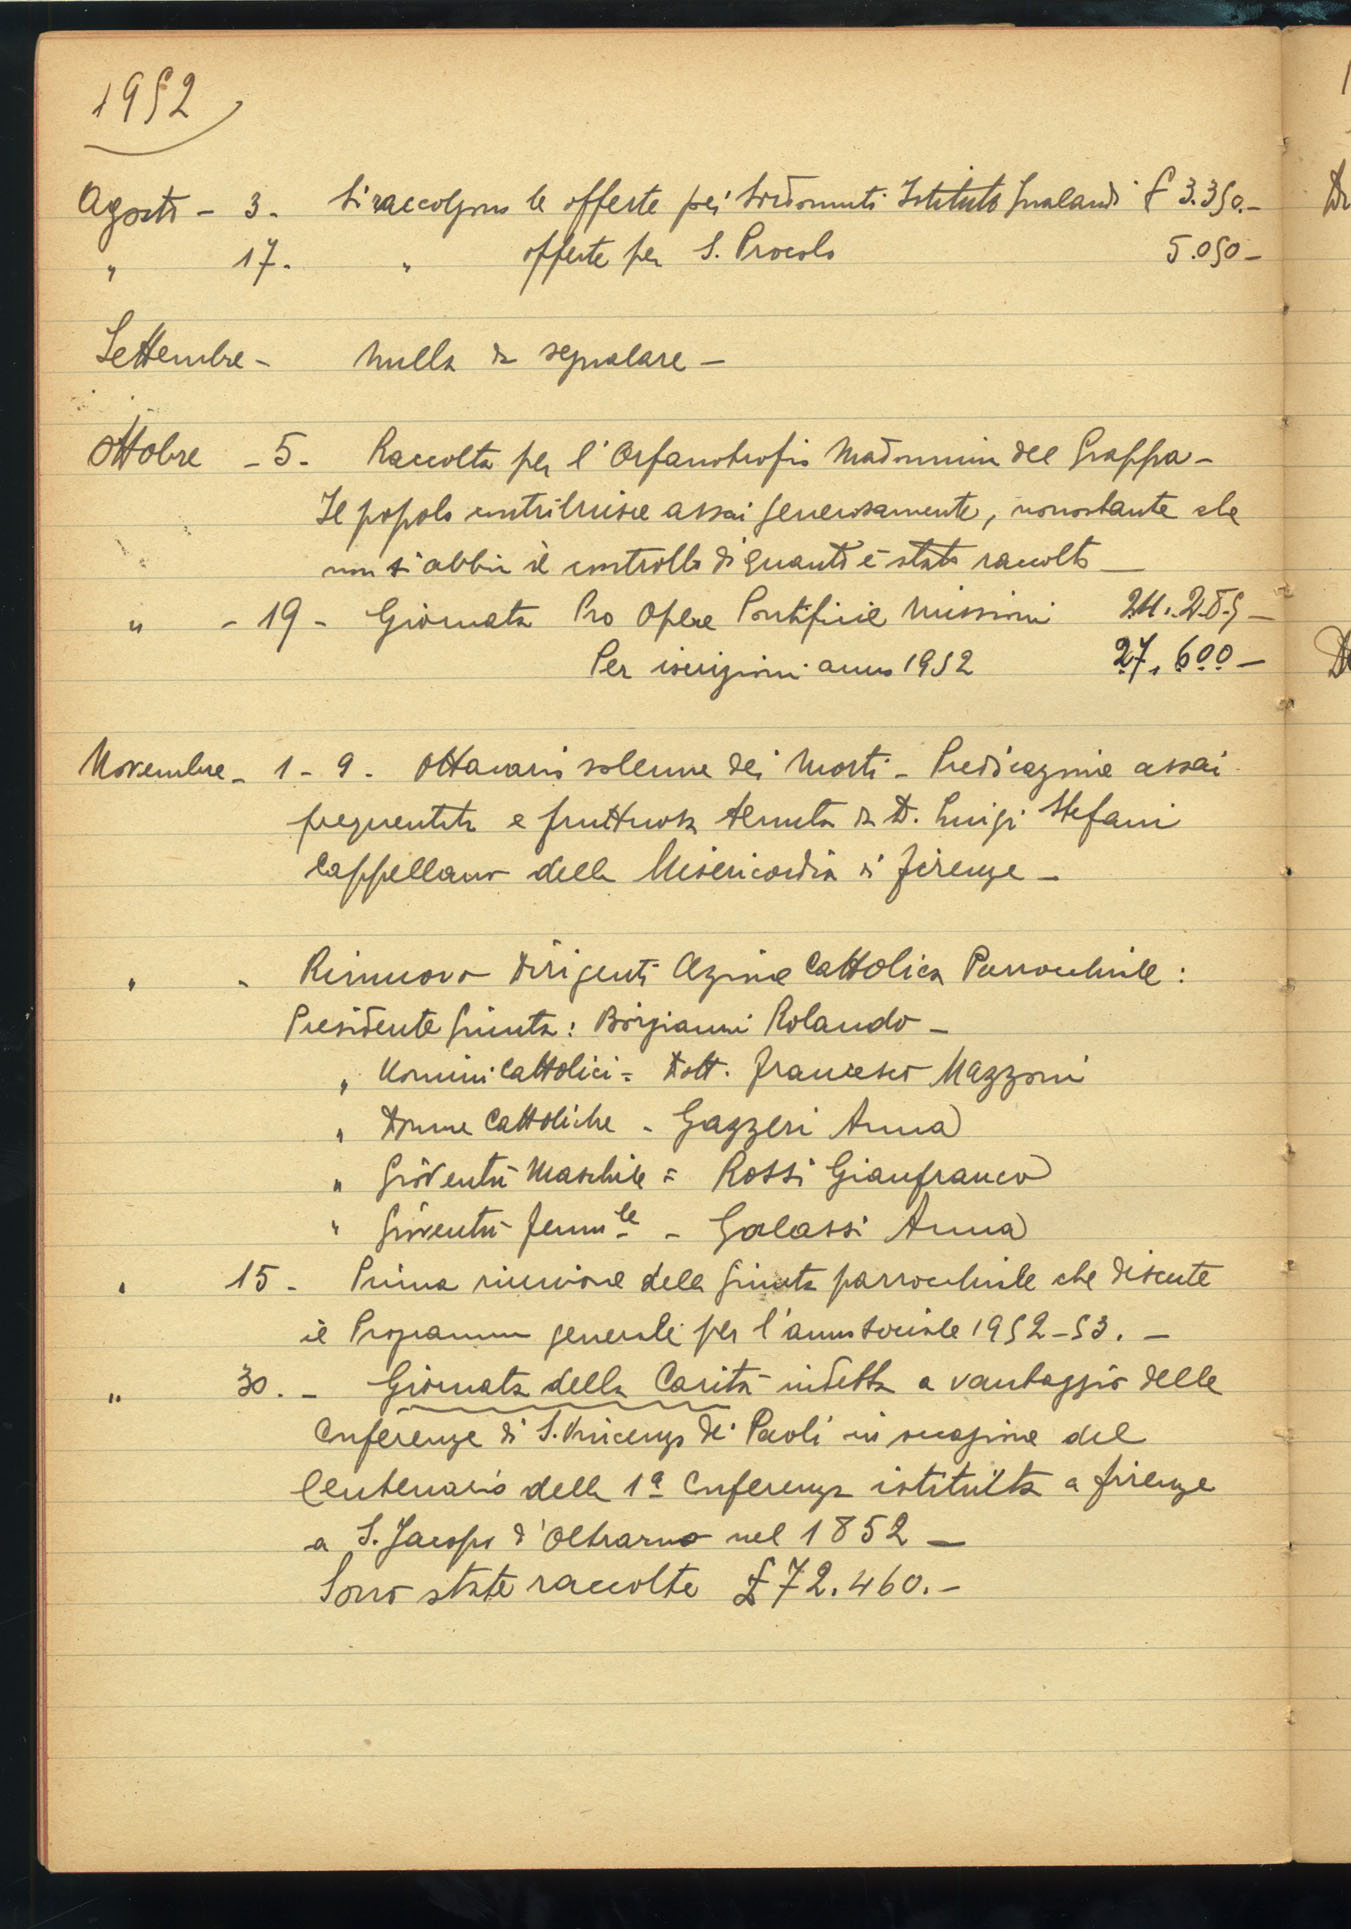 1952
Agosto - 3. Si raccolgono le offerte pei Sordomuti Istituto Gualandi £ 3.350.-
" 17. " offerte per S. Procolo 5.050 -
Settembre - Nulla da segnalare -
Ottobre - 5. Raccolta per l'Orfanotrofio Madonnina del Grappa -
Il popolo contribuisce assai generosamente, nonostante che
non si abbia il controllo di quanto è stato raccolto -
" - 19 - Giornata Pro Opere Pontificie Missioni
Per iscrizioni anno 1952 27.600 -
Novembre - 1 - 9 - Ottavario solenne dei Morti - Predicazione assai
frequentata e fruttuosa tenuta da D. Luigi Stefani
Cappellano della Misericordia di Firenze -
" - Rinnovo Dirigenti Azione Cattolica Parrocchiale :
Presidente Giunta : Borgianni Rolando -
" Uomini Cattolici = Dott. Francesco Mazzoni
" Donne Cattoliche - Gazzeri Anna
" Gioventù Maschile = Rossi Gianfranco
" Gioventù Femmle - Galassi Anna
" 15 - Prima riunione della Giunta parrocchiale che discute
il Programma generale per l'anno sociale 1952-53. -
" 30. - Giornata della Carità indetta a vantaggio delle
Conferenze di S. Vincenzo de' Paoli in occasione del
Centenario della 1ª Conferenza istituita a Firenze
a S. Jacopo d'Oltrarno nel 1852 -
Sono state raccolte £ 72.460.-